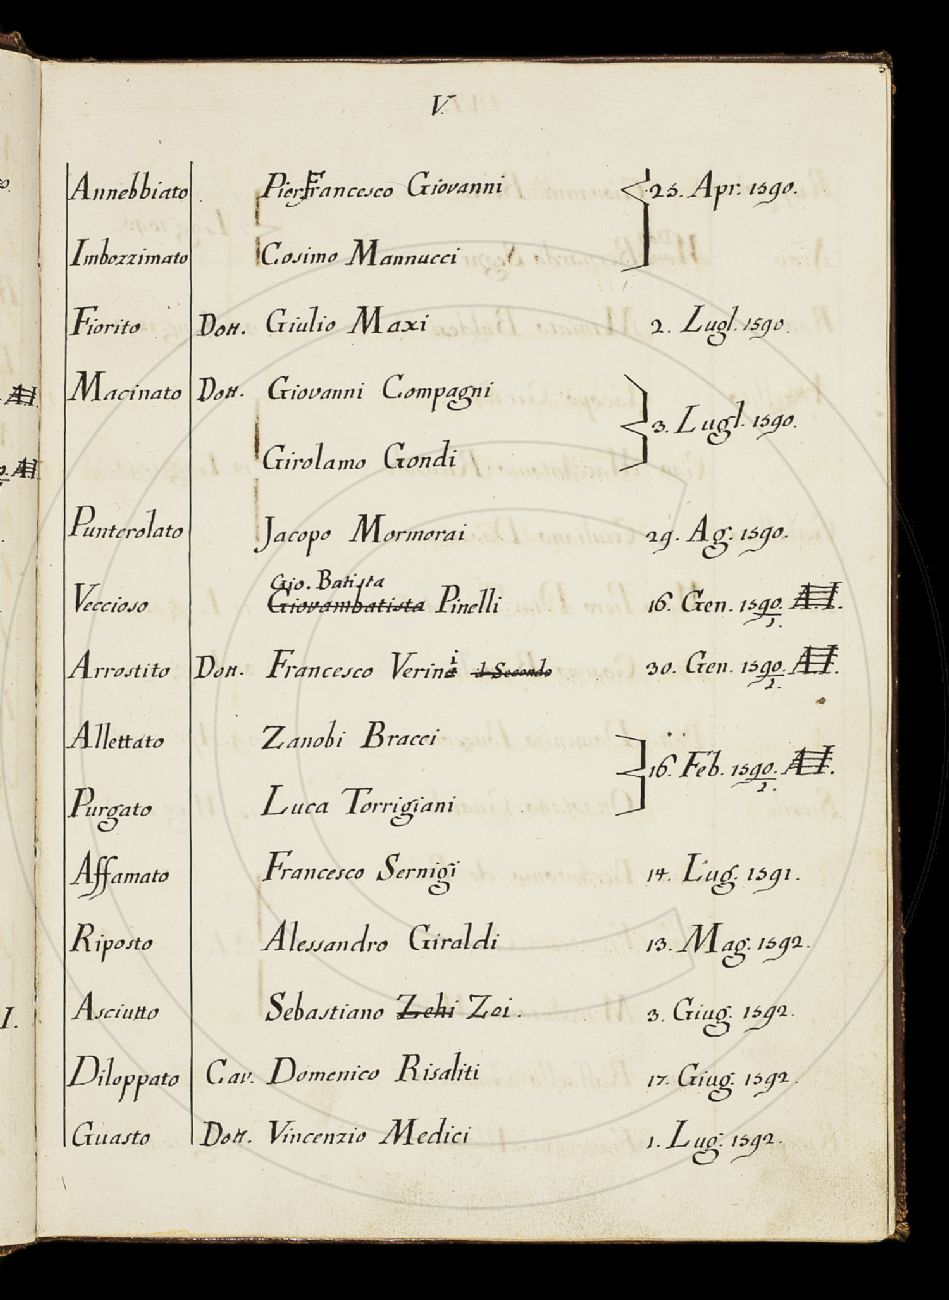 V.
Annebbiato Pierfrancesco Giovanni 23. Apr. 1590.
Imbozzimato Cosimo Mannucci
Fiorito Dott. Giulio Maxi 2. Lugl. 1590.
Macinato Dott. Giovanni Compagni
3. Lugl. 1590.
Girolamo Gondi
Punterolato Jacopo Mormorai 29. Ag. 1590.
Gio. Batista
Veccioso Giovambatista Pinelli 16. Gen. 1590/1. A.I.
Arrostito Dott. Francesco Verini il Secondo 30. Gen. 1590/1. A.I.
Allettato Zanobi Bracci
16. Feb. 1590/1. A.I.
Purgato Luca Torrigiani
Affamato Francesco Sernigi 14. Lug. 1591.
Riposto Alessandro Giraldi 13. Mag. 1592.
Asciutto Sebastiano Zehi Zei. 3. Giug. 1592.
Diloppato Cav. Domenico Risaliti 17. Giug. 1592.
Guasto Dott. Vincenzio Medici 1. Lug. 1592.